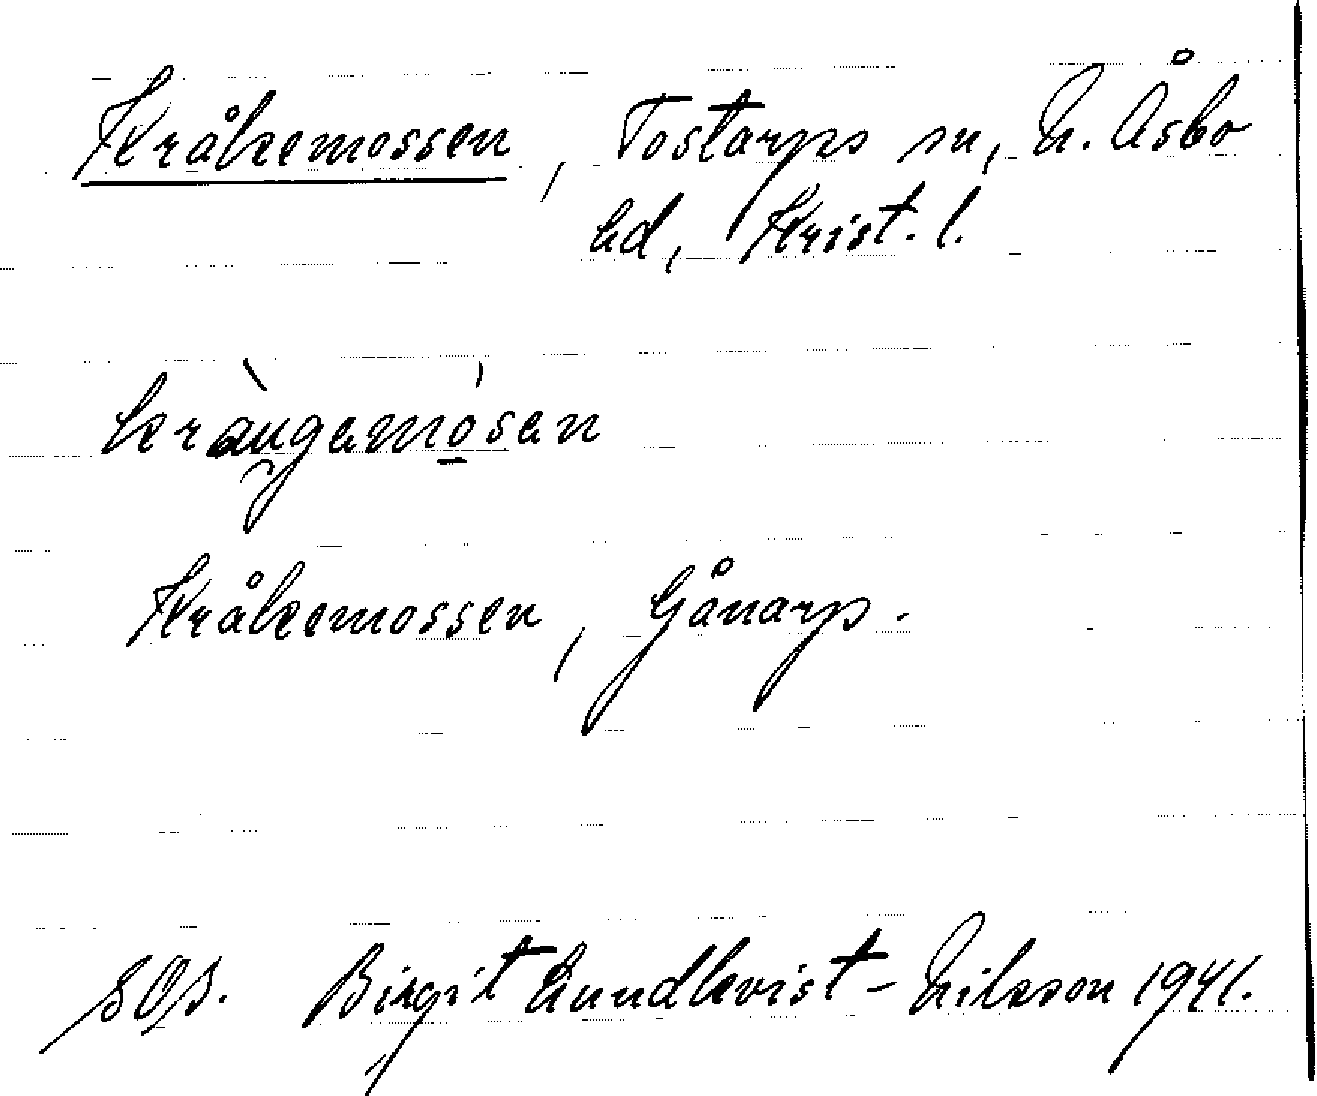 Kråkemossen, Tostarps sn, N. Åsbo
hd, Krist. l.
kràu̯gamósan
Kråkemossen, Gånarp.
SOS. Birgit Lundkvist-Nilsson 1941.